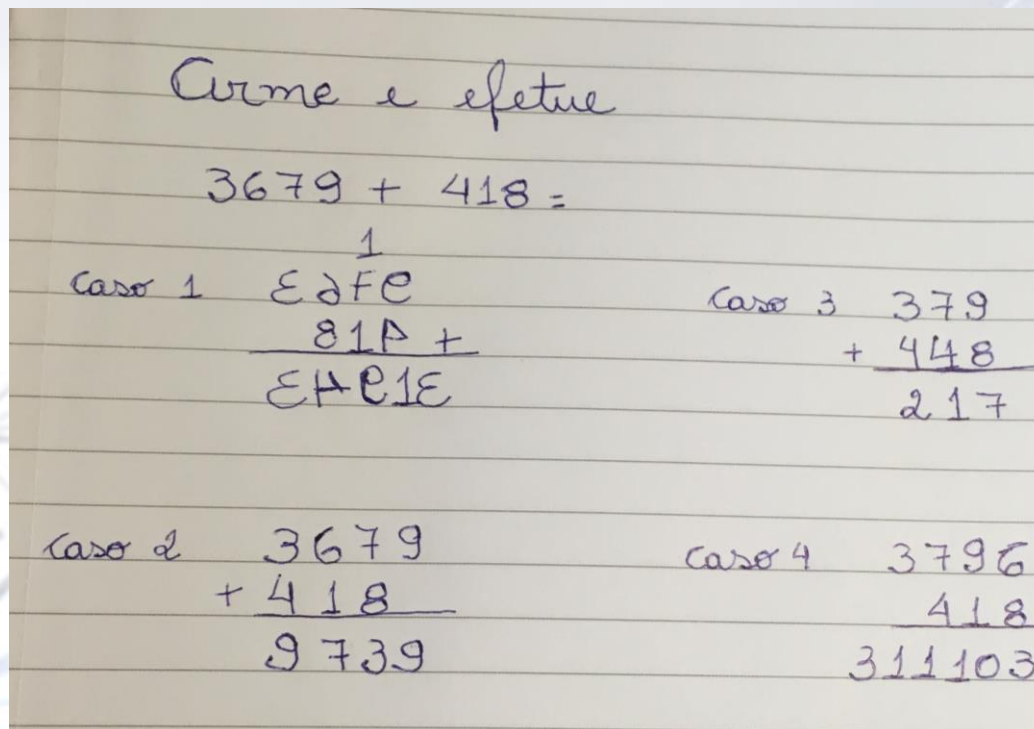 Arme e efetue
3679 + 418 =
1
caso 1 Ɛ∂Fe
81A +
ƐHe1Ɛ
caso 2 3679
+ 418
9739
caso 3 379
+ 448
217
caso 4 3796
418
311103